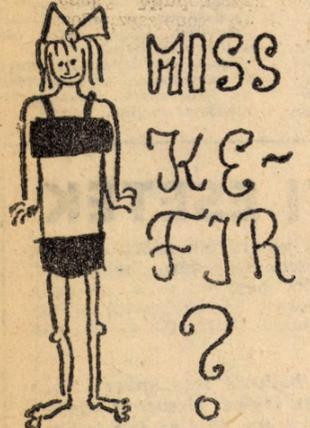 MISS
KE~
FIR
?